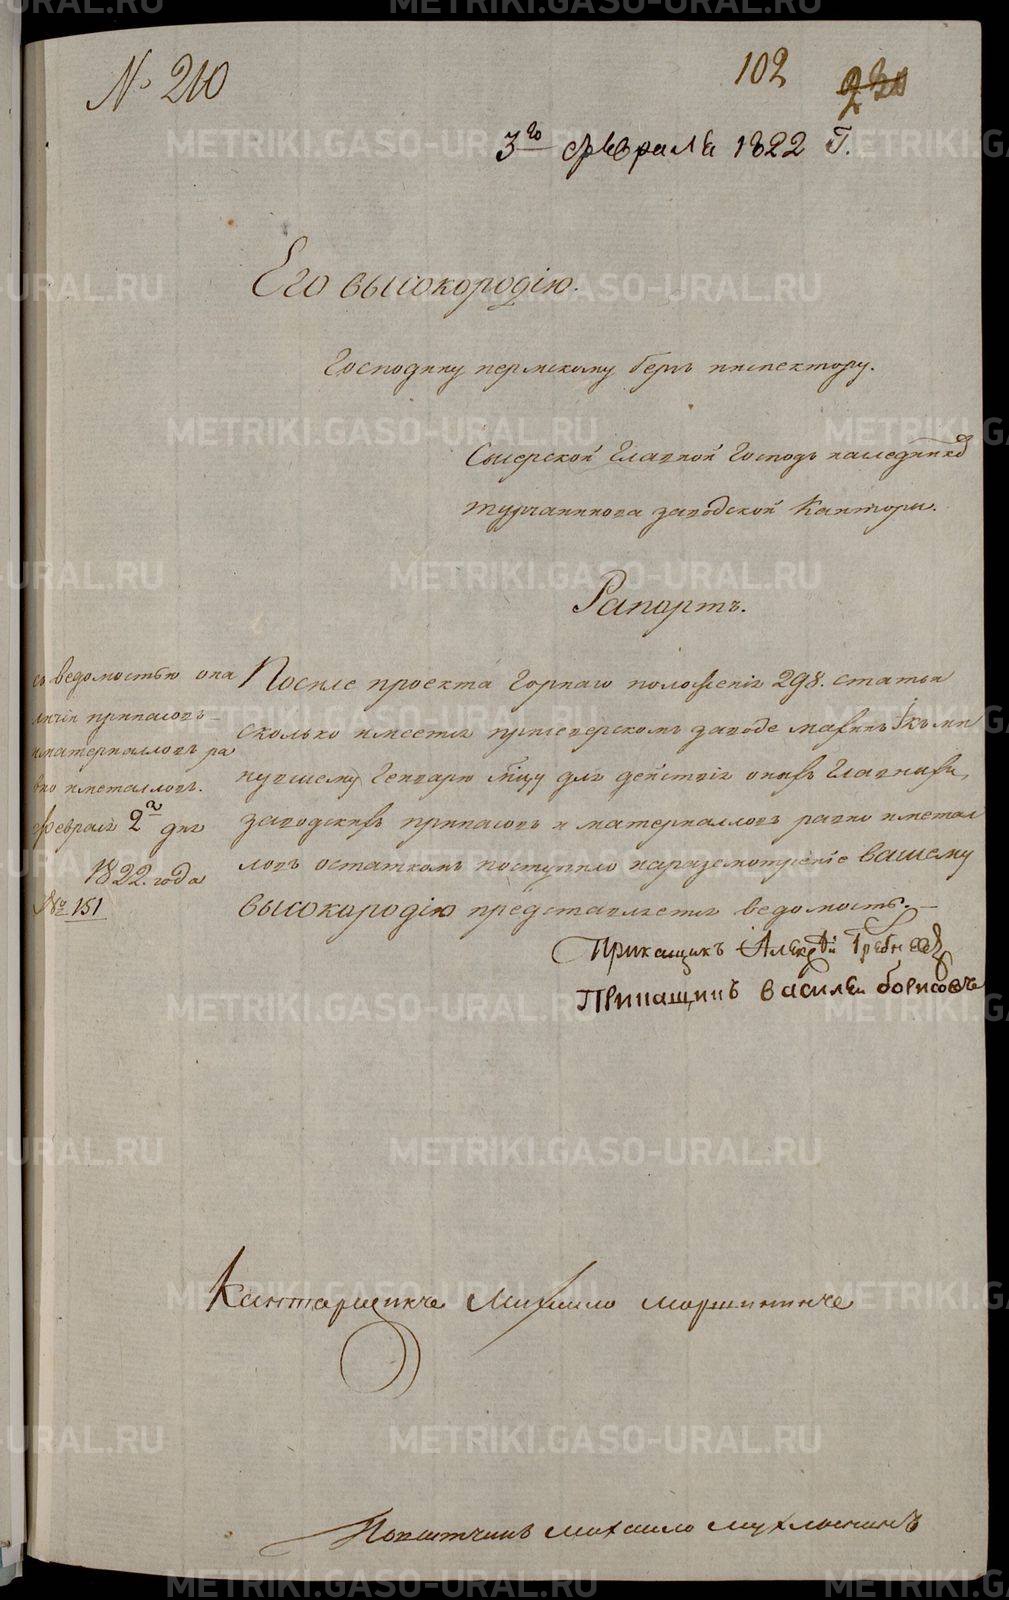 № 210
102
230
3го февраля 1822 Г.
Его высокородію.
Господину пермскому бергъ инспектору.
Сысерской Главной Господъ наследниковъ
турчанинова заводской Канторы.
Рапортъ.
съ ведомостью она
личіи припасовъ
и материаловъ ра
вно иметалловъ.
февраля 2го дня
1822. года
№ 151
Посиле проекта Горнаго положенія 298. статьи
сколько имеется присысерскомъ заводе машинъ ікъ ми
нувшему Генварю мцу для действія оныхъ Главныхъ
заводскихъ припасовъ и материалловъ равно иметал
ловъ остаткомъ поступило наразсмотреніе вашему
высокародію представляется ведомость.
Прикащикъ Алексей Гребневъ
Прикащикъ василеи борисовъ
Кантарщикъ Михаило
Повытчикъ михаило мухлынинъ
METRIKI.GASO-URAL.RU